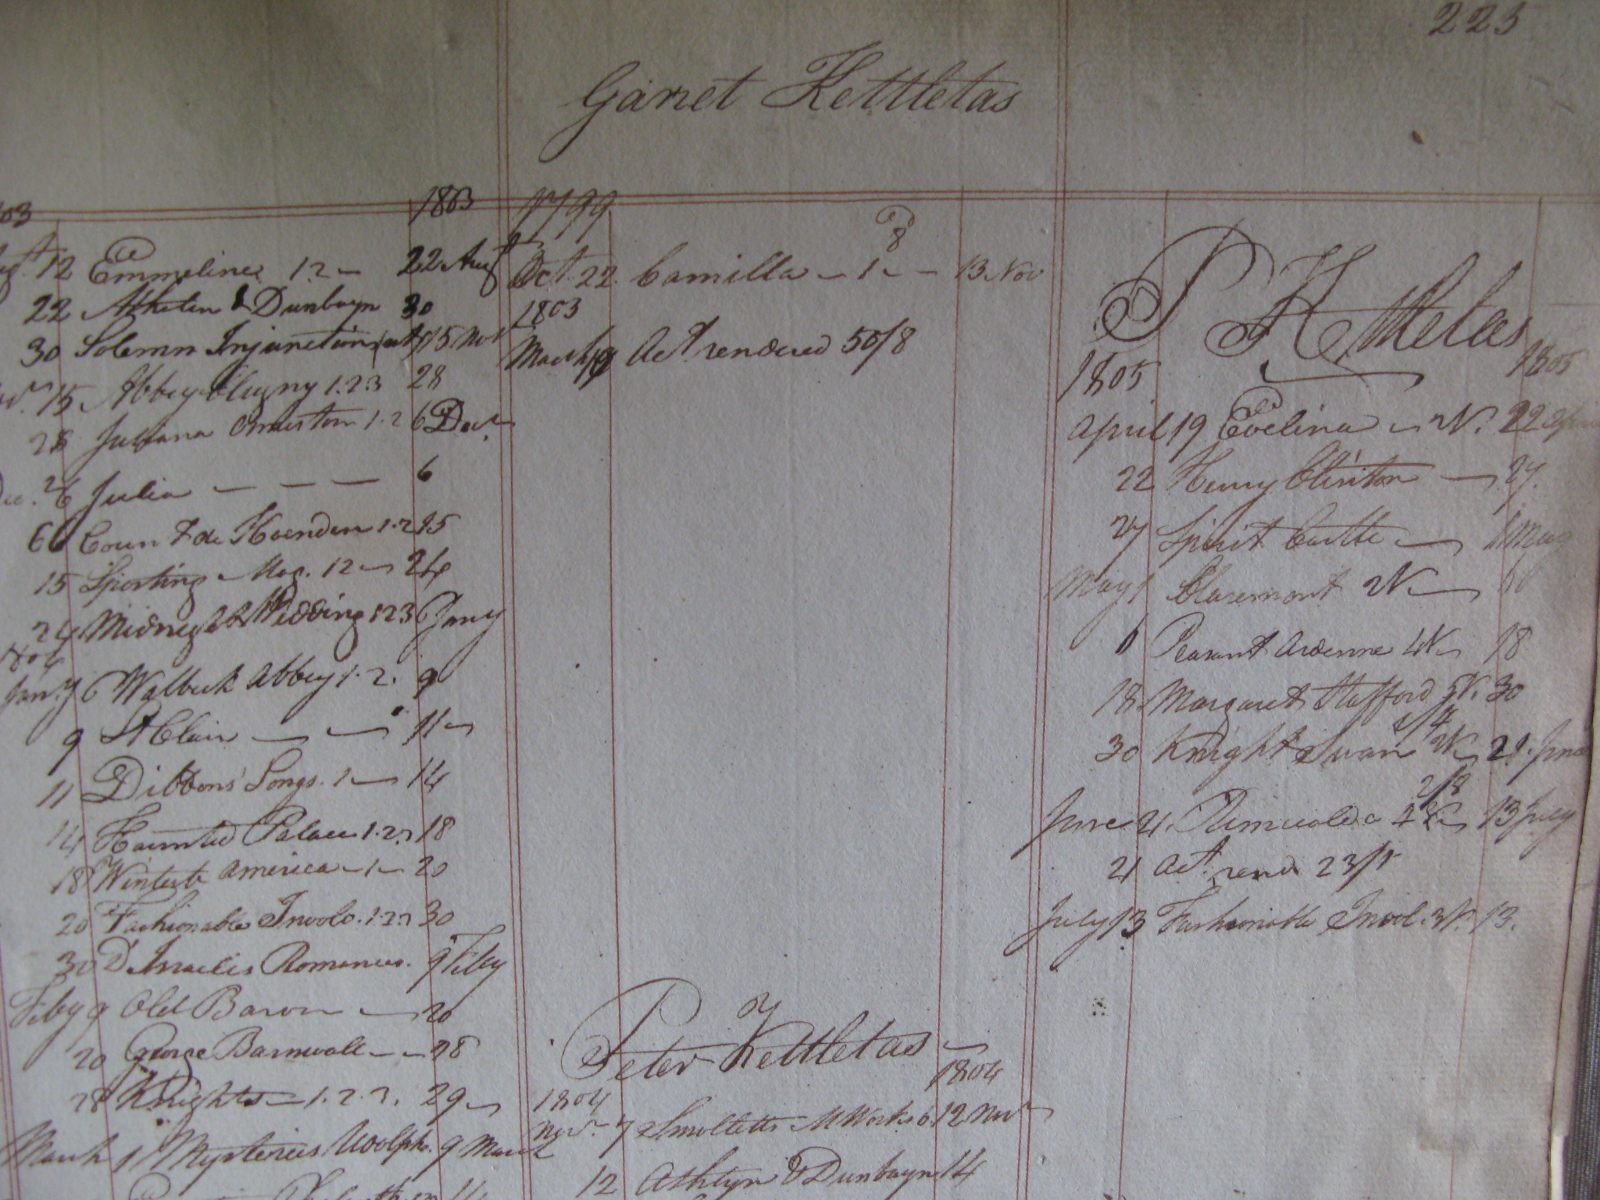 223
Garret Kettletas
1803
12 Emmeline 12 22 Augt
22 Athelin & Dunbayn 30
30 Solemn Injunction 15 Nov
15 Abbey Clugny 1.2.3 28
28 Juliana Ormeston 1.2 6 Decr
6 Julia 6
6 Count de Hoenden 1.2 15
15 Sporting Mag. 12 24
24 Midnight Wedding 123 Jany
Jany 6 Walbeck Abbey 1.2. 9
9 St Clair 11
11 Dibbons Songs. 1 14
14 Haunted Palace 1.2.3 18
18 Winterb America 1 20
20 Fashionable Invol. 1.2.3 30
30 D'Israelis Romances. 9 Feby
Feby 9 Old Baron 20
20 George Barnwall 28
28 Knights 1.2.3. 29
March 1 Mysteries Udolpho 9 March
1799
Oct. 22 Camilla 1 13 Nov
1803
March 19 act rendered 50/8
Peter Kettletas
1804 1804
Novr 7 Smolletts M Works 6 12 Novr
12 Athlyn & Dunbayn 14
P Kettletas
1805 1805
April 19 Evelina 2V. 22 April
22 Henry Clinton 27
27 Spirit Castle 1 May
May 1 Claremont 2V
Peasant Ardenne 4V 18
18 Margaret Stafford 3V. 30
30 Knight Swan 2V 21 June
2/8
June 21. Rimualdo 4V 13 July
21 act. rend 23/1
July 13 Fashionable Invol. 3V. 13.